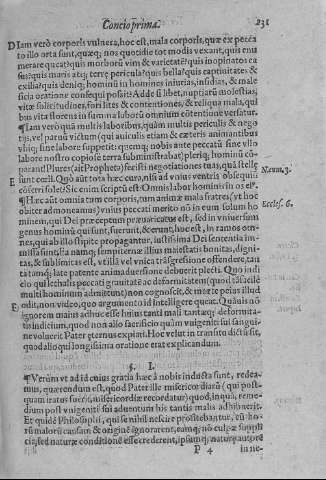 Concio prima. 231
D Iam verò corporis vulnera, hoc est, mala corporis, quæ ex pecca
to illo orta sunt, quæq; nos quotidie tot modis vexant, quis enu
merare queat? quis morborũ vim & varietatẽ? quis inopinatos ca
sus? quis maris atq; terræ pericula? quis bella? quis captiuitates &
exilia? quis deniq; hominũ in homines iniurias, insidias, & male
ficia oratione consequi possit? Adde si libet, nuptiarũ molestias,
vitæ solicitudines, fori lites & contentiones, & reliqua mala, qui
bus vita florens in summa laborũ omnium cõtentione versatur.
¶ Iam verò quis multis laboribus, quàm multis periculis & nego
tijs, vel parùm victum (qui auiculis etiam & cæteris animantibus
vbiq; sine labore suppetit: quemq; nobis ante peccatũ sine vllo
labore nostro copiose terra subministrabat) pleriq; hominũ cõ-
parant? Plures (ait Propheta) fecisti negotiationes tuas, quã stellę Naum. 3.
E sunt cœli. Quò aut tota hæc cura, nisi ad vnius ventris obsequiũ
cõferri solet? Sic enim scriptũ est: Omnis labor hominis in os eius. Eccles. 6.
¶ Hæc aũt omnia tum corporis, tum animæ mala fratres (vt hoc
obiter admoneamus) vnius peccati merito nõ in eum solum ho
minem, qui Dei præceptum præuaricatus est, sed in vniuersum
genus hominũ qui sunt, fuerunt, & erunt, hoc est, in ramos om-
nes, qui ab illo stipite propagantur, iustissima Dei sententia im-
missa sunt. Ita namq; sempiternæ illius maiestatis bonitas, digni-
tas, & sublimitas est, vt illã vel vnica trãsgressione offendere, tan
ta tamq; late patente animaduersione debuerit plecti. Quo indi
cio qui lethalis peccati grauitatẽ ac deformitatem (quod tã facilè
multi hominum admittunt) non cognoscit, & morte peius illud
F odit, non video, quo argumento id intelligere queat. Quãuis nõ
ignorem maius adhuc esse huius tanti mali tantæq; deformita-
tis indicium, quod non alio sacrificio quàm vnigeniti sui sangui-
ne voluerit Pater æternus expiari. Hoc velut in transitu dictũ sit,
quod alioqui longissima oratione erat explicandum.
§. I.
¶ Verũm vt ad id cuius gratia hæc à nobis inducta sunt, redea-
mus, quærendum est, quod Pater ille misericordiarũ (qui post-
quam iratus fuerit, misericordiæ recordatur) quod, inquã, reme-
dium post vnigeniti sui aduentum his tantis malis adhibuerit.
Et quidẽ Philosophi, qui se nihil nescire profitebantur, cũ ho-
rũ malorũ causam & originẽ ignorarent, eamq; nõ culpæ suppli
ciũ, sed naturæ conditionẽ esse crederent, ipsumq; naturæ autorẽ
P 4 in ne-